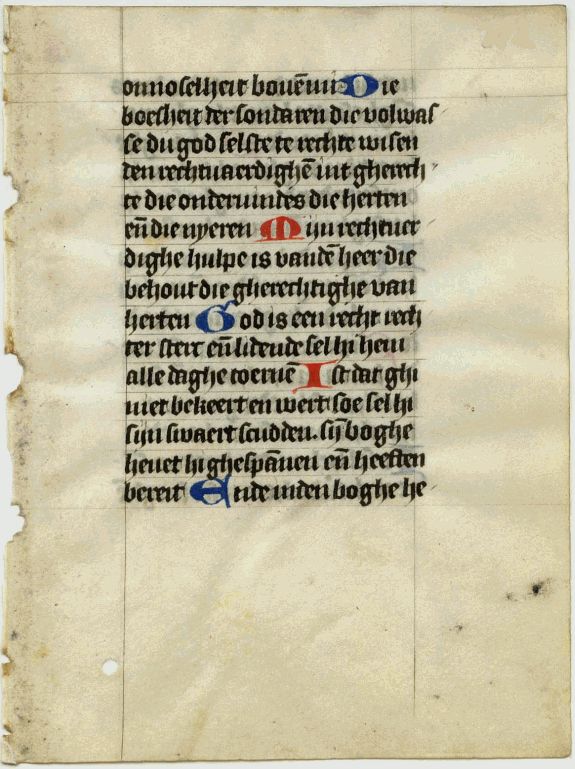 onnoselheit bouē mi Die
boesheit der sondaren die volwas
se du god selste te rechte wisen
den rechtuaerdighē uut gherech
te die onderuindes die herten
eñ die nyeren Mijn rechtuer
dighe hulpe is vandē heer die
behout die gherechtighe van
herten God is een recht rech
ter sterc eñ lidende sel hi hem
alle daghe toernē Ist dat ghi
niet bekeert en wert soe sel hi
sijn swaert scudden. sij boghe
heuet hi ghespānen eñ heeften
bereit Ende inden boghe he